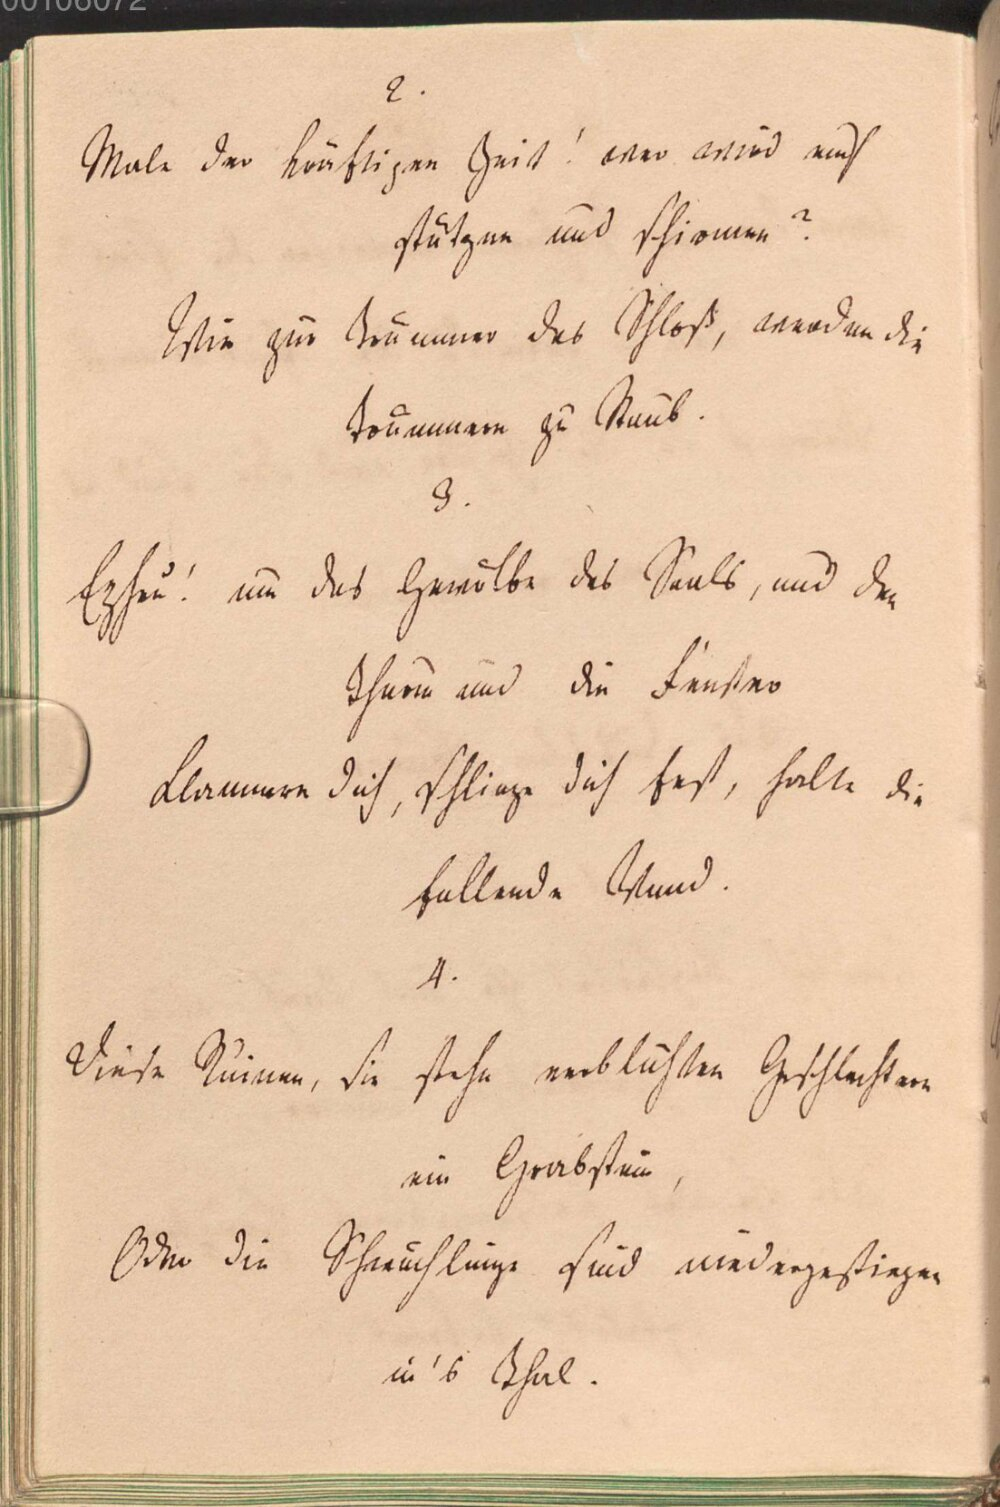 00106072
2.
Male der kräftigen Zeit! wer wird euch
stützen und schirmen?
Wie zur Trümmer das Schloß, werden die
Trümmern zu Staub.
3.
Epheu! um das Gewölbe des Saals, und den
Thurm und die Fenster
Klammere dich, schlinge dich fest, halte die
fallende Wand.
4.
Diese Ruinen, sie stehn verblühten Geschlechtern
ein Grabstein,
Oder die Schwächlinge sind niedergestiegen
in's Thal.